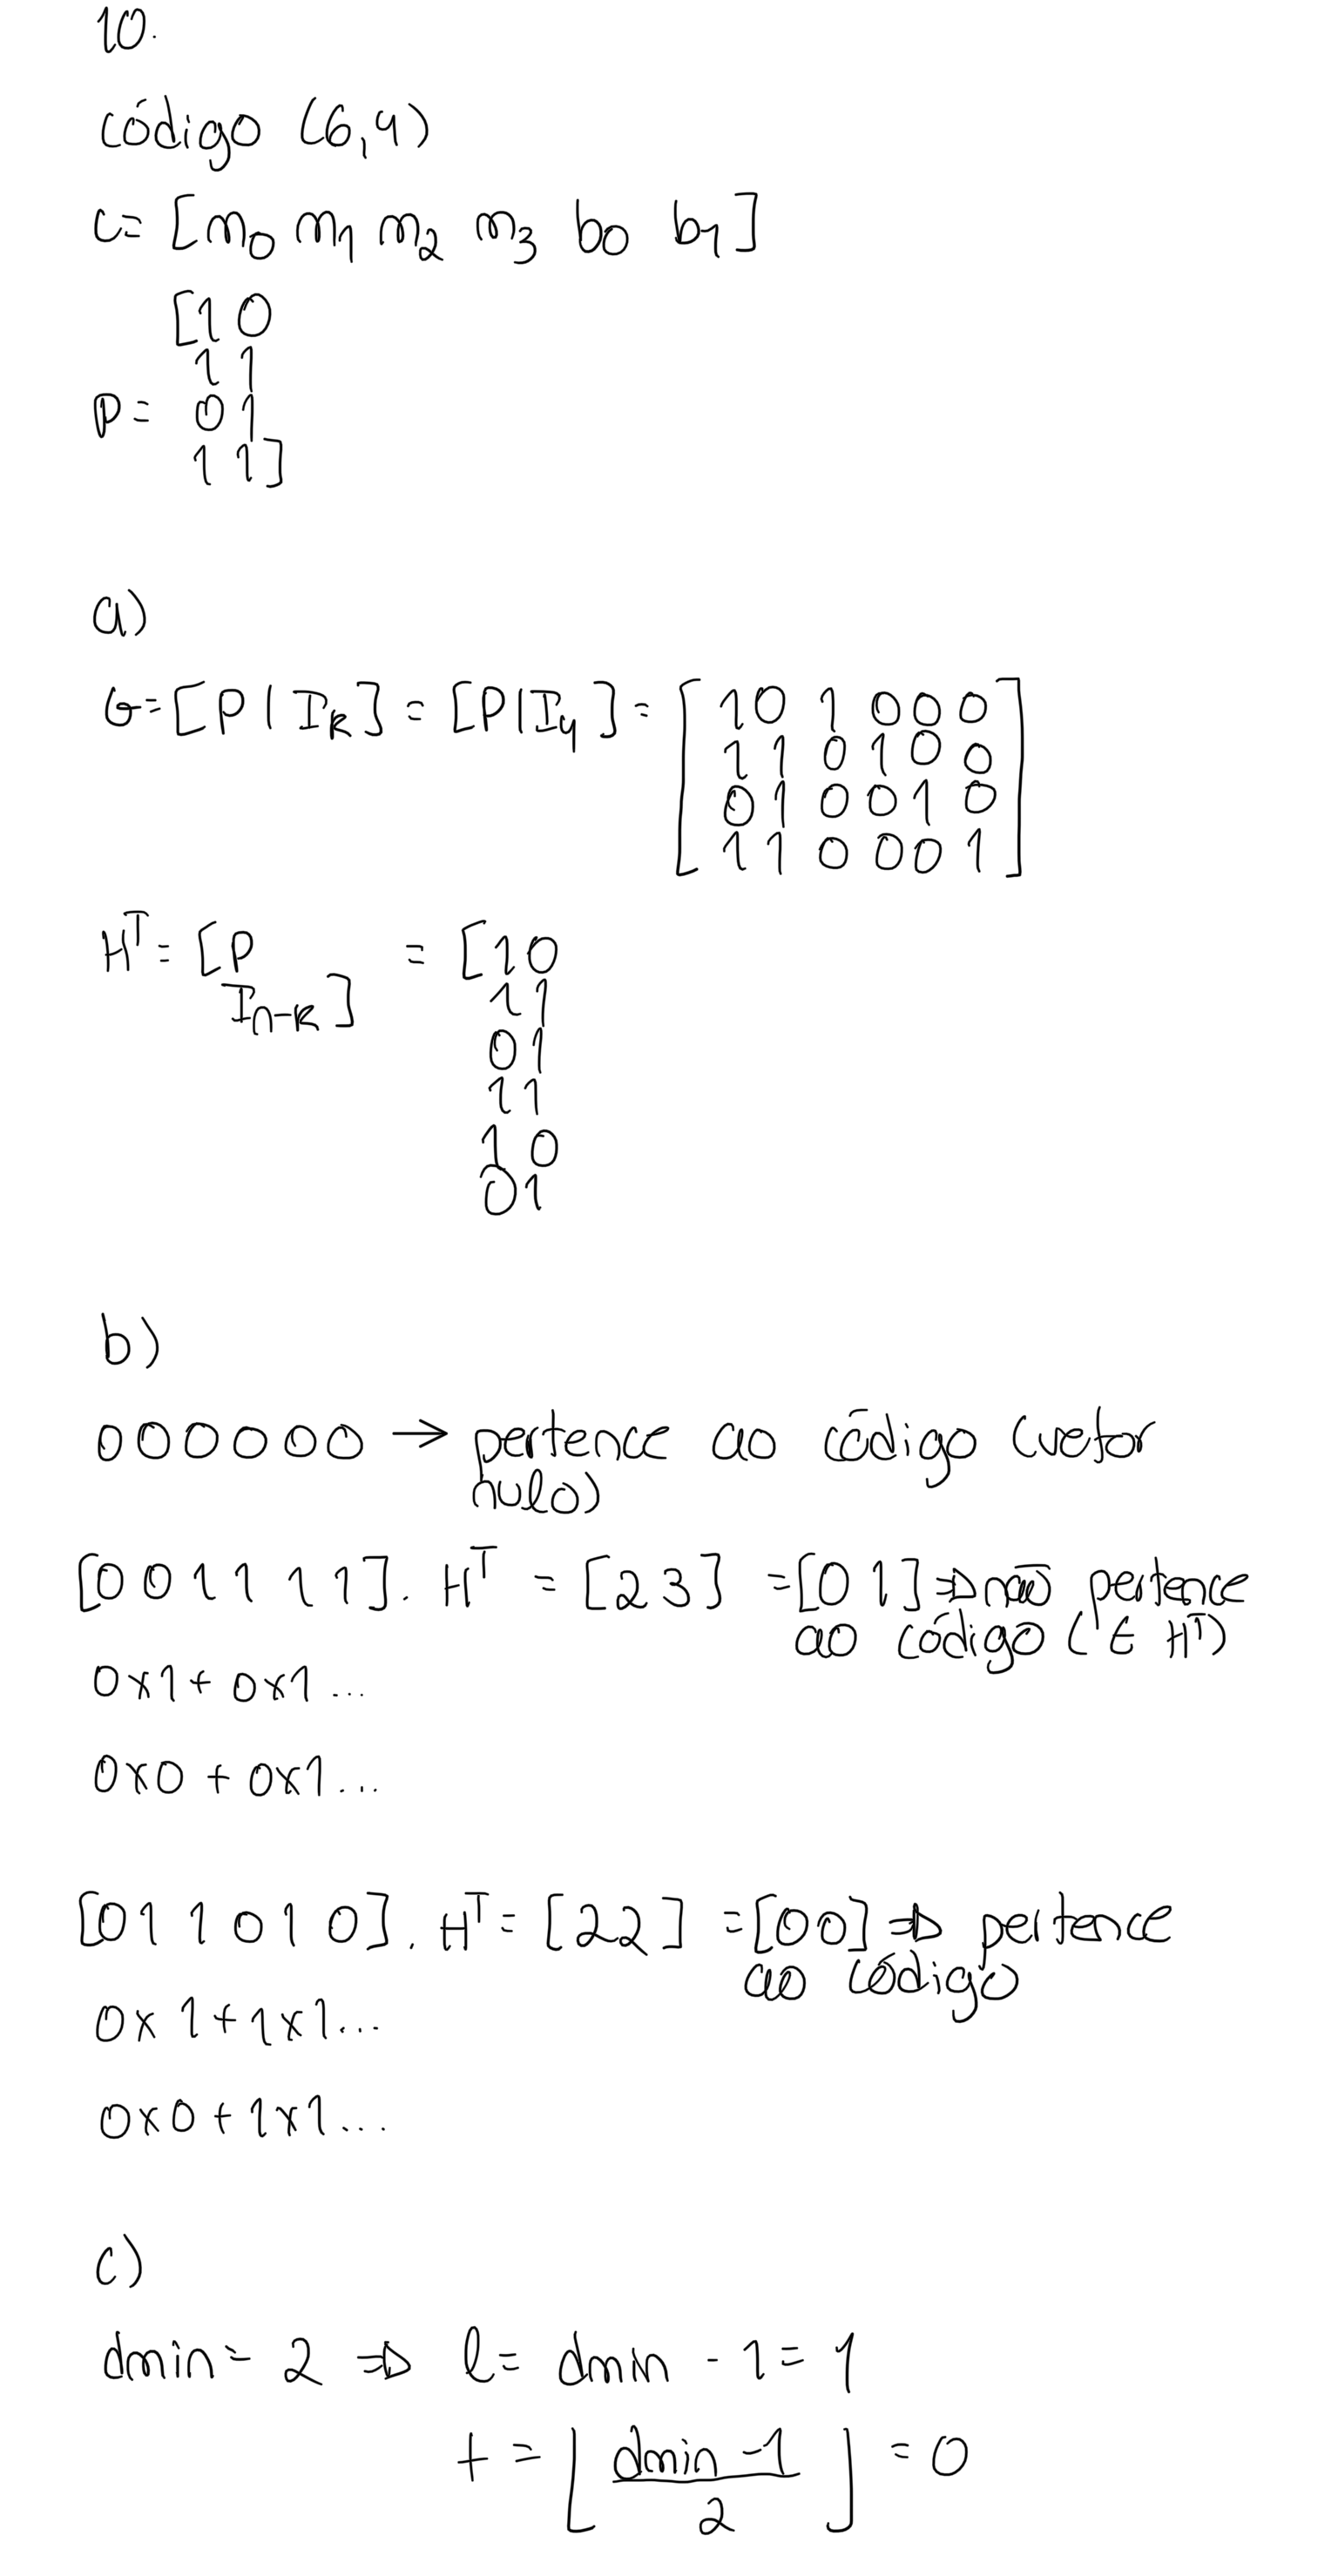 10.
código (6,4)
C= [m0 m1 m2 m3 b0 b1]
[1 0
1 1
P= 0 1
1 1]
a)
G=[P|Ik] = [P|I4] = [1 0 1 0 0 0
1 1 0 1 0 0
0 1 0 0 1 0
1 1 0 0 0 1]
H^T = [P = [1 0
In-k] 1 1
0 1
1 1
1 0
0 1
b)
0 0 0 0 0 0 → pertence ao código (vetor
nulo)
[0 0 1 1 1 1]. H^T = [2 3] =[0 1] ⇒ não pertence
ao código ('E H^T)
0x1+ 0x1 ...
0x0 + 0x1 ...
[0 1 1 0 1 0]. H^T = [2 2] =[0 0] ⇒ pertence
ao código
0x 1+1x1...
0x0+1x1...
c)
dmin= 2 ⇒ l= dmin - 1= 1
t = ⌊(dmin -1)/2⌋ = 0